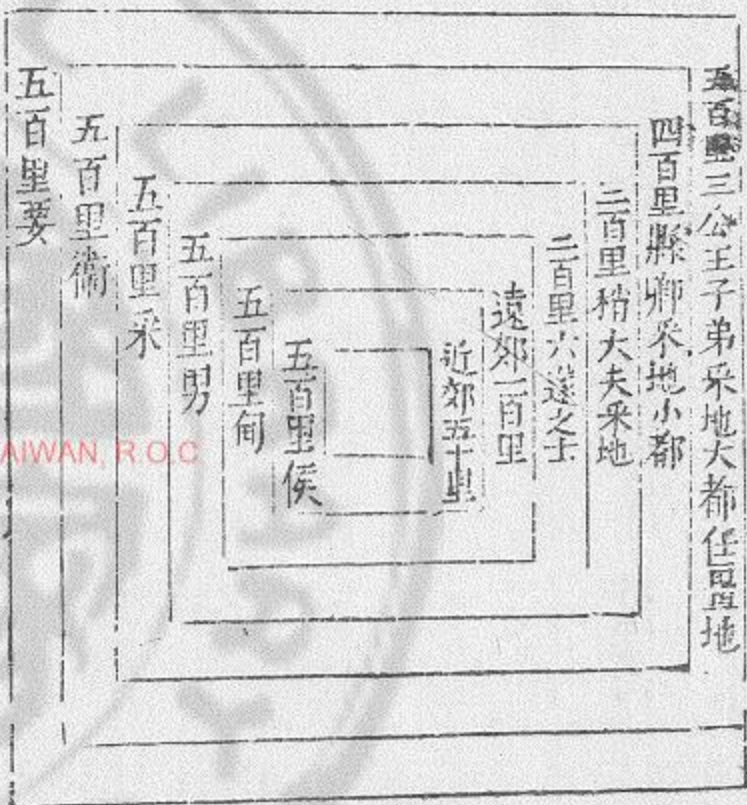 五百里三公王子弟采地大都任畺地
四百里縣卿采地小都
二百里稍大夫采地
二百里六遂之士
遠郊一百里
近郊五十里
五百里侯
五百里甸
五百里男
五百里采
五百里衛
五百里要
AIWAN, R.O.C